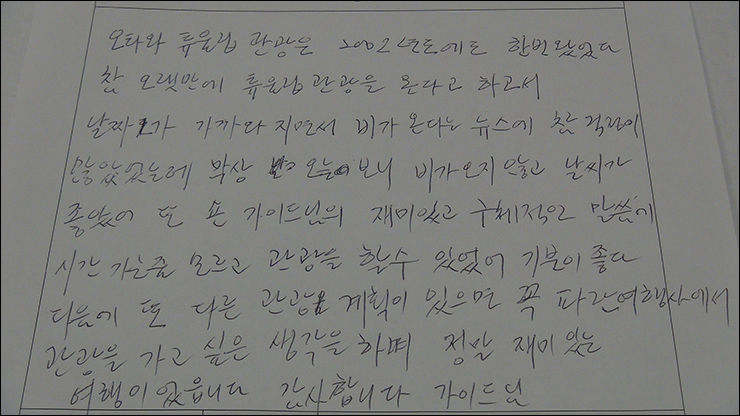 오타와 튜울립 관광은 2002년도에도 한번 왔었다
참 오랫만에 튜울립 관광을 온다고 하고서
날짜가 가까와 지면서 비가 온다는 뉴스에 참 걱정이
많았었는데 막상 오늘 보니 비가 오지 않고 날씨가
좋았어 또 가이드님의 재미있고 구체적인 말씀에
시간 가는줄 모르고 관광을 할수 있었어 기분이 좋다
다음에 또 다른 관광 계획이 있으면 꼭 파란여행사에서
관광을 가고 싶은 생각을 하며 정말 재미있는
여행이었읍니다 감사합니다 가이드님